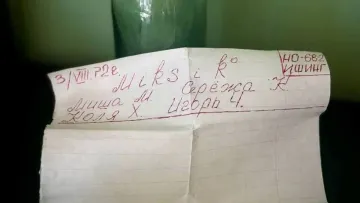 3/VIII.72г.
НО-68г
УШИНГ
Miksiko
Миша М. Серёжа К
Коля Х. Игорь Ч.